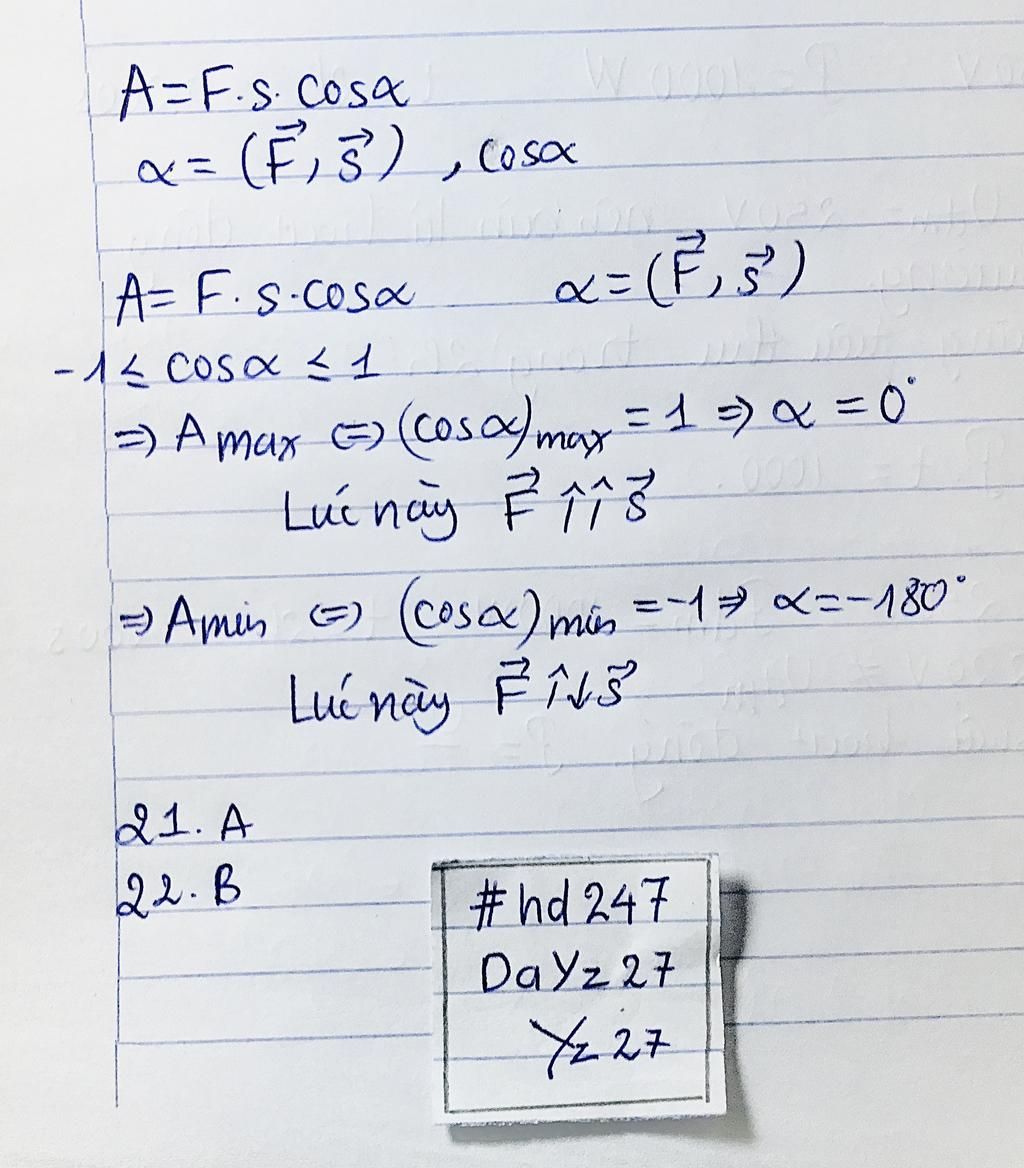 A = F.s. cosα
α = (F⃗, s⃗) , cosα
A = F.s.cosα α = (F⃗, s⃗)
-1 ≤ cosα ≤ 1
⇒ A max ⇔ (cosα) max = 1 ⇒ α = 0°
Lúc này F⃗ ↑↑ s⃗
⇒ A min ⇔ (cosα) min = -1 ⇒ α = -180°
Lúc này F⃗ ↑↓ s⃗
21. A
22. B
#hd247
DaYz27
Yz27